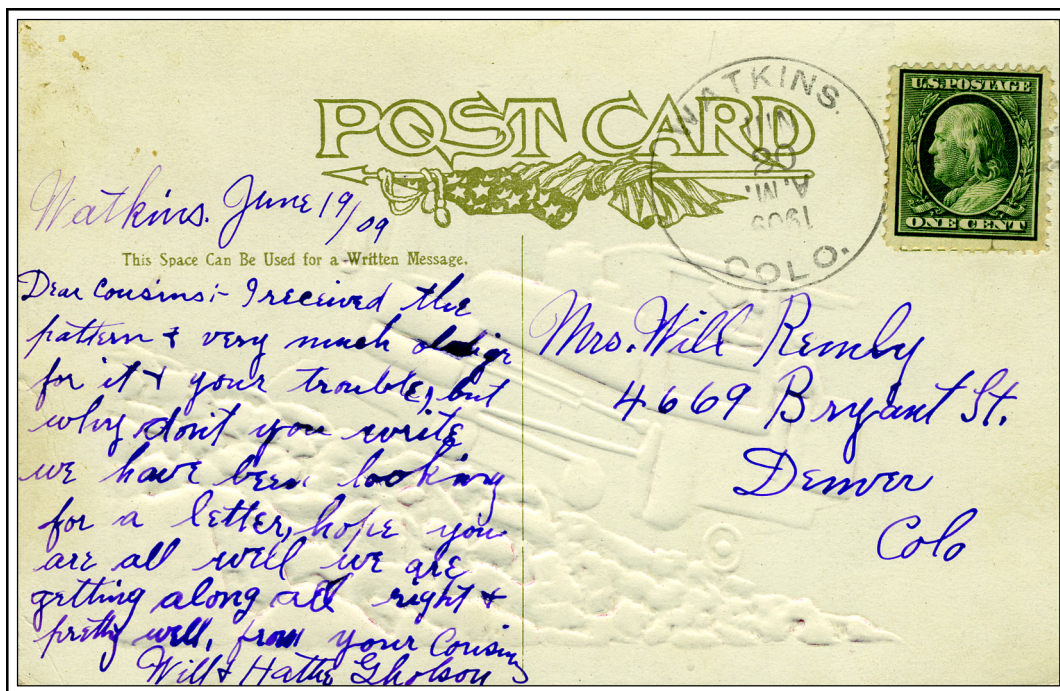 POST CARD
WATKINS.
JUN
20
A.M.
1909
COLO.
U.S. POSTAGE
ONE CENT
Watkins. June 19/09
This Space Can Be Used for a Written Message.
Dear Cousins;- I received the
pattern & very much oblige
for it & your trouble, but
why don't you write
we have been looking
for a letter, hope you
are all well we are
getting along all right &
pretty well, from your Cousins
Will & Hattie Gholson
Mrs. Will Remby
4669 Bryant St.
Denver
Colo